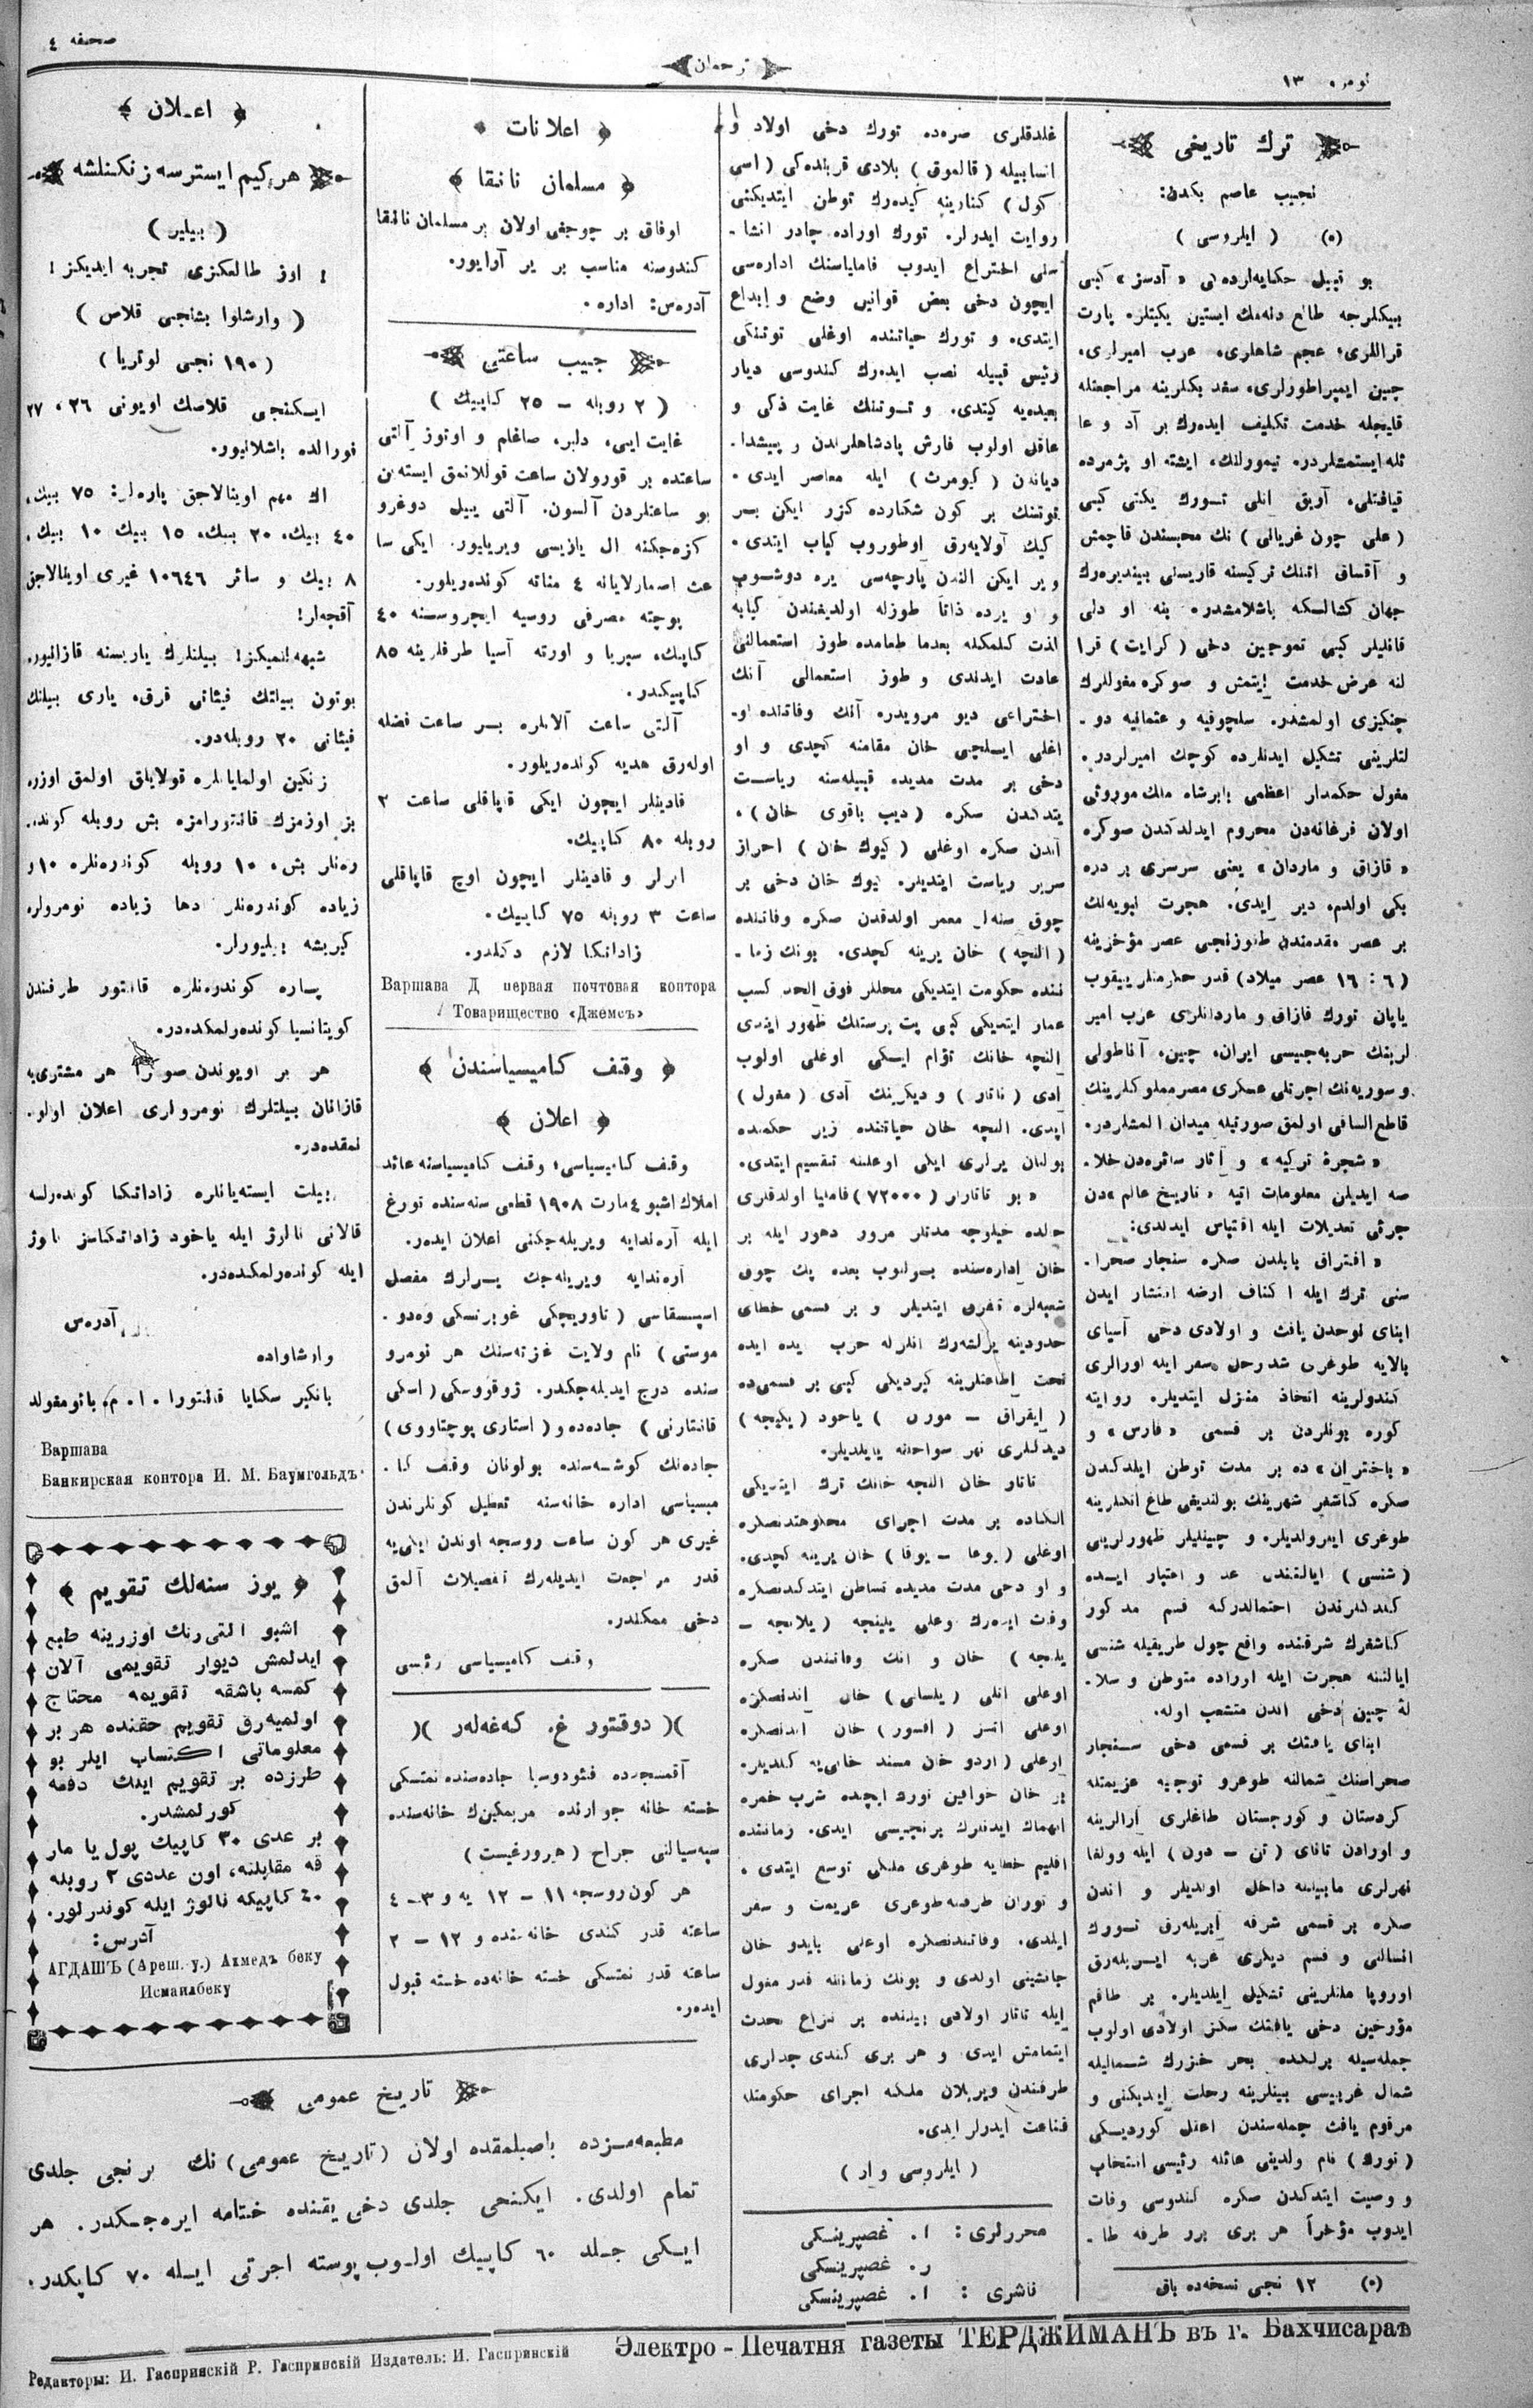 نومره ١٣
ترجمان
صحيفه ٤
ترك تاريخى
نجيب عاصم بكدن:
(٥) ( ايلروسى )
بو قبيل حكايه‌لرده‌كى «آدسز» كبى
بيكلرجه طالع دنه‌مك ايستين يكيتلره پارت
قراللرى، عجم شاهلرى، عرب اميرلرى،
چين ايمپراطورلرى، سغد بكلرينه مراجعتله
قليجله خدمت تكليف ايده‌رك بر آد و عا
ئله ايستمشلردر. تيمورلنك، ايشته او پژمرده
قيافتلى، آريق اتلى تورك يكتى كبى
جهان كشالسكه باشلامشدر. ينه او دلى
قانليلر كبى تموجين دخى (كرايت) قرا
لنه عرض خدمت ايتمش و صوكره مغوللرك
چنكيزى اولمشدر. سلچوقيه و عثمانيه دو-
لتلرينى تشكيل ايدنلرده كوچك اميرلردر.
مغول حكمدار اعظمى بابرشاه ملك موروثى
اولان فرغانه‌دن محروم ايدلدكدن صوكره
«قازاق و ماردان» يعنى سرسرى بر دره
بكى اولدم، دير ايدى. هجرت نبويه‌نك
(٦ : ١٦ عصر ميلاد) قدر حكومتلر ييقوب
ياپان تورك قازاق و ماردانلرى عرب امير
لرينك حربه‌جيسى ايران، چين، آناطولى
و سوريه‌نك اجرتلى عسكرى مصر مملوكلرينك
«شجرۀ تركيه» و آثار سائره‌دن خلا-
صه ايديلن معلومات اتيه «تاريخ عالم»دن
جزئى تعديلات ايله اقتباس ايدلدى:
«افتراق بابلدن صكره سنجار صحرا-
سنى ترك ايله اكناف ارضه انتشار ايدن
ابناى نوحدن يافث و اولادى دخى آسياى
كندولرينه اتخاذ منزل ايتديلر. روايته
كوره بونلردن بر قسمى «فارس» و
«باختران»ده بر مدت توطن ايلدكدن
صكره كاشغر شهرينك بولنديغى طاغ اتكلرينه
كاشغرك شرقنده واقع چول طريقيله شنسى
ايالتنه هجرت ايله اوراده متوطن و سلا-
لۀ چين دخى اندن متشعب اوله.
ابناى يافثك بر قسمى دخى سنجار
صحراسنك شمالنه طوغرو توجيه عزيمتله
كردستان و كورجستان طاغلرى آرالرينه
و اورادن تاناى (تن - دون) ايله وولغا
نهرلرى مابيننه داخل اولديلر و اندن
صكره بر قسمى شرقه آيريله‌رق تورك
اوروپا ملتلرينى تشكيل ايلديلر. بر طاقم
مؤرخين دخى يافثك سكز اولادى اولوب
جمله‌سيله برلكده بحر خزرك شماليله
شمال غربيسى بينلرينه رحلت ايديكنى و
مرقوم يافث جمله‌سندن اعقل كورديكى
(تورك) نام ولدينى عائله رئيسى انتخاب
و وصيت ايتدكدن صكره كندوسى وفات
ايدوب مؤخراً هر برى برر طرفه طا-
(٥) ١٢ نجى نسخه‌ده باق
غلدقلرى صره‌ده تورك دخى اولاد و
انسابيله (قالموق) بلادى قربنده‌كى (اسى
كول) كنارينه كيده‌رك توطن ايتديكنى
روايت ايدرلر. تورك اوراده چادر انشا-
سنى اختراع ايدوب فاميلياسنك اداره‌سى
ايچون دخى بعض قوانين وضع و ابداع
ايتدى. و تورك حياتنده اوغلى توتنكى
رئيس قبيله نصب ايده‌رك كندوسى ديار
بعيده‌يه كيتدى. و توتنك غايت ذكى و
عاقل اولوب فارش پادشاهلرندن و پيشدا-
دياندن (كيومرث) ايله معاصر ايدى.
توتنك بر كون شكارده كزر ايكن بر
كيك آولايه‌رق اوطوروب كباب ايتدى.
و ير ايكن الندن پارچه‌سى يره دوشوب
و او يرده ذاتاً طوزله اولديغندن كبابه
لذت كلمكله بعدما طعامده طوز استعمالنى
عادت ايدندى و طوز استعمالى آنك
اختراعى ديو مرويدر. آنك وفاتنده او-
غلى ايسلچى خان مقامنه كچدى و او
دخى بر مدت مديده قبيله‌سنه رياست
يتدكدن صكره (ديب باقوى خان).
آندن صكره اوغلى (كيوك خان) احراز
سرير رياست ايتديلر. كيوك خان دخى بر
چوق سنه‌لر معمر اولدقدن صكره وفاتنده
(النچه) خان يرينه كچدى. بونك زما-
ننده حكومت ايتديكى محللر فوق الحد كسب
عمار ايتديكى كبى بت پرستلك ظهور ايتدى
النچه خانك تؤام ايكى اوغلى اولوب
آدى (تاتار) و ديكرينك آدى (مغول)
ايدى. النچه خان حياتنده زير حكمنده
بولنان يرلرى ايكى اوغلنه تقسيم ايتدى.
«بو تاتارلر (٧٢٠٠٠) فاميليا اولدقلرى
حالده خيلوجه مدتلر مرور دهور ايله بر
خان اداره‌سنده بولنوب بعده پك چوق
شعبه‌لره تفرق ايتديلر و بر قسمى خطاى
ديدكلرى نهر سواحلنه يايلديلر.
تاتار خان النچه خانك ترك ايتديكى
اوغلى (بوغا - بوقا) خان يرينه كچدى.
و او دخى مدت مديده تسلطن ايتدكدنصكره
ايلدى. وفاتندنصكره اوغلى بايدو خان
جانشينى اولدى و بونك زماننه قدر مغول
ايله تاتار اولادى بيننده بر نزاع تحدث
ايتمامش ايدى و هر برى كندى جدلرى
طرفندن ويريلان ملكه اجراى حكومتله
قناعت ايدرلر ايدى.
( ايلروسى وار )
محررلرى: ا. غصپرينسكى
ر. غصپرينسكى
ناشرى : ا. غصپرينسكى
اعلانات
مسلمان نانيقا
اوفاق بر چوجغى اولان بر مسلمان نانيقا
كندوسنه مناسب بر ير آرايور.
آدره‌س: اداره.
جيب ساعتى
( ٢ روبله - ٢٥ كاپيك )
غايت ايى، دلبر، صاغلم و اوتوز آلتى
ساعتده بر قورولان ساعت قوللانمق ايسته‌ين
بو ساعتلردن آلسون. آلتى ييل دوغرو
كزه‌جكنه ال يازيسى ويريليور. ايكى سا
عت اسمارلايانه ٤ مناته كونده‌ريلور.
پوچته مصرفى روسيه ايچروسنه ٤٠
كاپيك، سيبريا و اورته آسيا طرفلرينه ٨٥
كاپيكدر.
آلتى ساعت آلانلره بر ساعت فضله
اوله‌رق هديه كونده‌ريلور.
قادينلر ايچون ايكى قاپاقلى ساعت ٢
روبله ٨٠ كاپيك.
ارلر و قادينلر ايچون اوچ قاپاقلى
ساعت ٣ روبله ٧٥ كاپيك.
زاداتكا لازم دكلدر.
Варшава Д первая почтовая контора
Товарищество «Джемсъ»
وقف كاميسياسندن
اعلان
وقف كاميسياسى، وقف كاميسياسنه عائد
املاك اشبو ٤ مارت ١٩٠٨ قطعى سنه‌سنده تورغ
ايله آره‌ندايه ويريله‌جكنى اعلان ايدر.
آره‌ندايه ويريله‌جك يرلرك مفصل
اسپيسقاسى (تاوريچكى غوبرنسكى وه‌دو-
موستى) نام ولايت غزته‌سنك هر نومرو
سنده درج ايديله‌جكدر. ژوقووسكى (اسكى
قانتارنى) جاده‌ده و (استارى پوچتاووى)
جاده‌نك كوشه‌سنده بولونان وقف كا-
ميسياسى اداره خانه‌سنه تعطيل كونلرندن
غيرى هر كون ساعت روسجه اوندن ايكى‌يه
قدر مراجعت ايديله‌رك تفصيلات آلمق
دخى ممكندر.
وقف كاميسياسى رئيسى
دوقتور غ. كه‌غه‌له‌ر
آقمسجدده فئودوسيا جاده‌سنده نمتسكى
سپه‌سيالنى جراح (هيرورغيست)
هر كون روسجه ١١ - ١٢ يه و ٣-٤
ساعته قدر كندى خانه‌سنده و ١٢ - ٢
ساعته قدر نمتسكى خسته خانه‌ده خسته قبول
ايده‌ر.
اعلان
هر كيم ايسترسه زنكنلشه
( بيلير )
! اوز طالعكزى تجربه ايديكز!
( وارشاوا بشنجى قلاس )
( ١٩٠ نجى لوتريا )
ايكنجى قلاسك اويونى ٢٦، ٢٧
فورالده باشلانيور.
اك مهم اوينالاجق پاره‌لر: ٧٥ بيك،
٤٠ بيك، ٢٠ بيك، ١٥ بيك ١٠ بيك،
٨ بيك و سائر ١٠٦٤٦ غيرى اوينالاجق
آقچه‌لر!
شبهه ايتميكز! بيلتلرك ياريسنه قازانيور.
بوتون بيلتك فيئاتى قرق، يارى بيلتك
فيئاتى ٢٠ روبله‌در.
زنكين اولمايانلره قولايلق اولمق اوزره
بز اوزمزك قانتورامزه بش روبله كونده-
ره‌نلر بش، ١٠ روبله كونده‌ره‌نلره ١٠ و
زياده كونده‌ره‌نلر دها زياده نومرولره
كيريشه بيليورلر.
پاره كونده‌ره‌نلره قانتور طرفندن
كويتانسيا كونده‌رلمكده‌در.
هر بر اويوندن صوكرا هر مشترى‌يه
قازانان بيلتلرك نومرولرى اعلان اولو-
نمقده‌در.
بيلت ايسته‌يانلره زاداتكا كونده‌رلسه
قالانى نالوژ ايله ياخود زاداتكاسز نالوژ
ايله كونده‌رلمكده‌در.
آدره‌س
وارشاواده
بانكير سكايا قانتورا. ا. م. باومغولد
Варшава
Банкирская контора И. М. Баумгольдъ
يوز سنه‌لك تقويم
اشبو التى رنك اوزرينه طبع
ايدلمش ديوار تقويمى آلان
كمسه باشقه تقويمه محتاج
اولميه‌رق تقويم حقنده هر بر
معلوماتى اكتساب ايلر بو
طرزده بر تقويم ايلك دفعه
كورلمشدر.
بر عدى ٣٠ كاپيك پول يا مار
قه مقابلنه، اون عددى ٢ روبله
٤٠ كاپيكه نالوژ ايله كوندرلور.
آدرس:
АГДАШЪ (Ареш. у.) Ахмедъ беку
Исмаилбеку
تاريخ عمومى
مطبعه‌مزده باصيلمقده اولان (تاريخ عمومى)نك برنجى جلدى
تمام اولدى. ايكنجى جلدى دخى يقنده ختامه ايره‌جكدر. هر
ايكى جلد ٦٠ كاپيك اولوب پوسته اجرتى ايله ٧٠ كاپكدر.
Редакторы: И. Гаспринскій Р. Гаспринскій Издатель: И. Гаспринскій
Электро - Печатня газеты ТЕРДЖИМАНЪ въ г. Бахчисараѣ